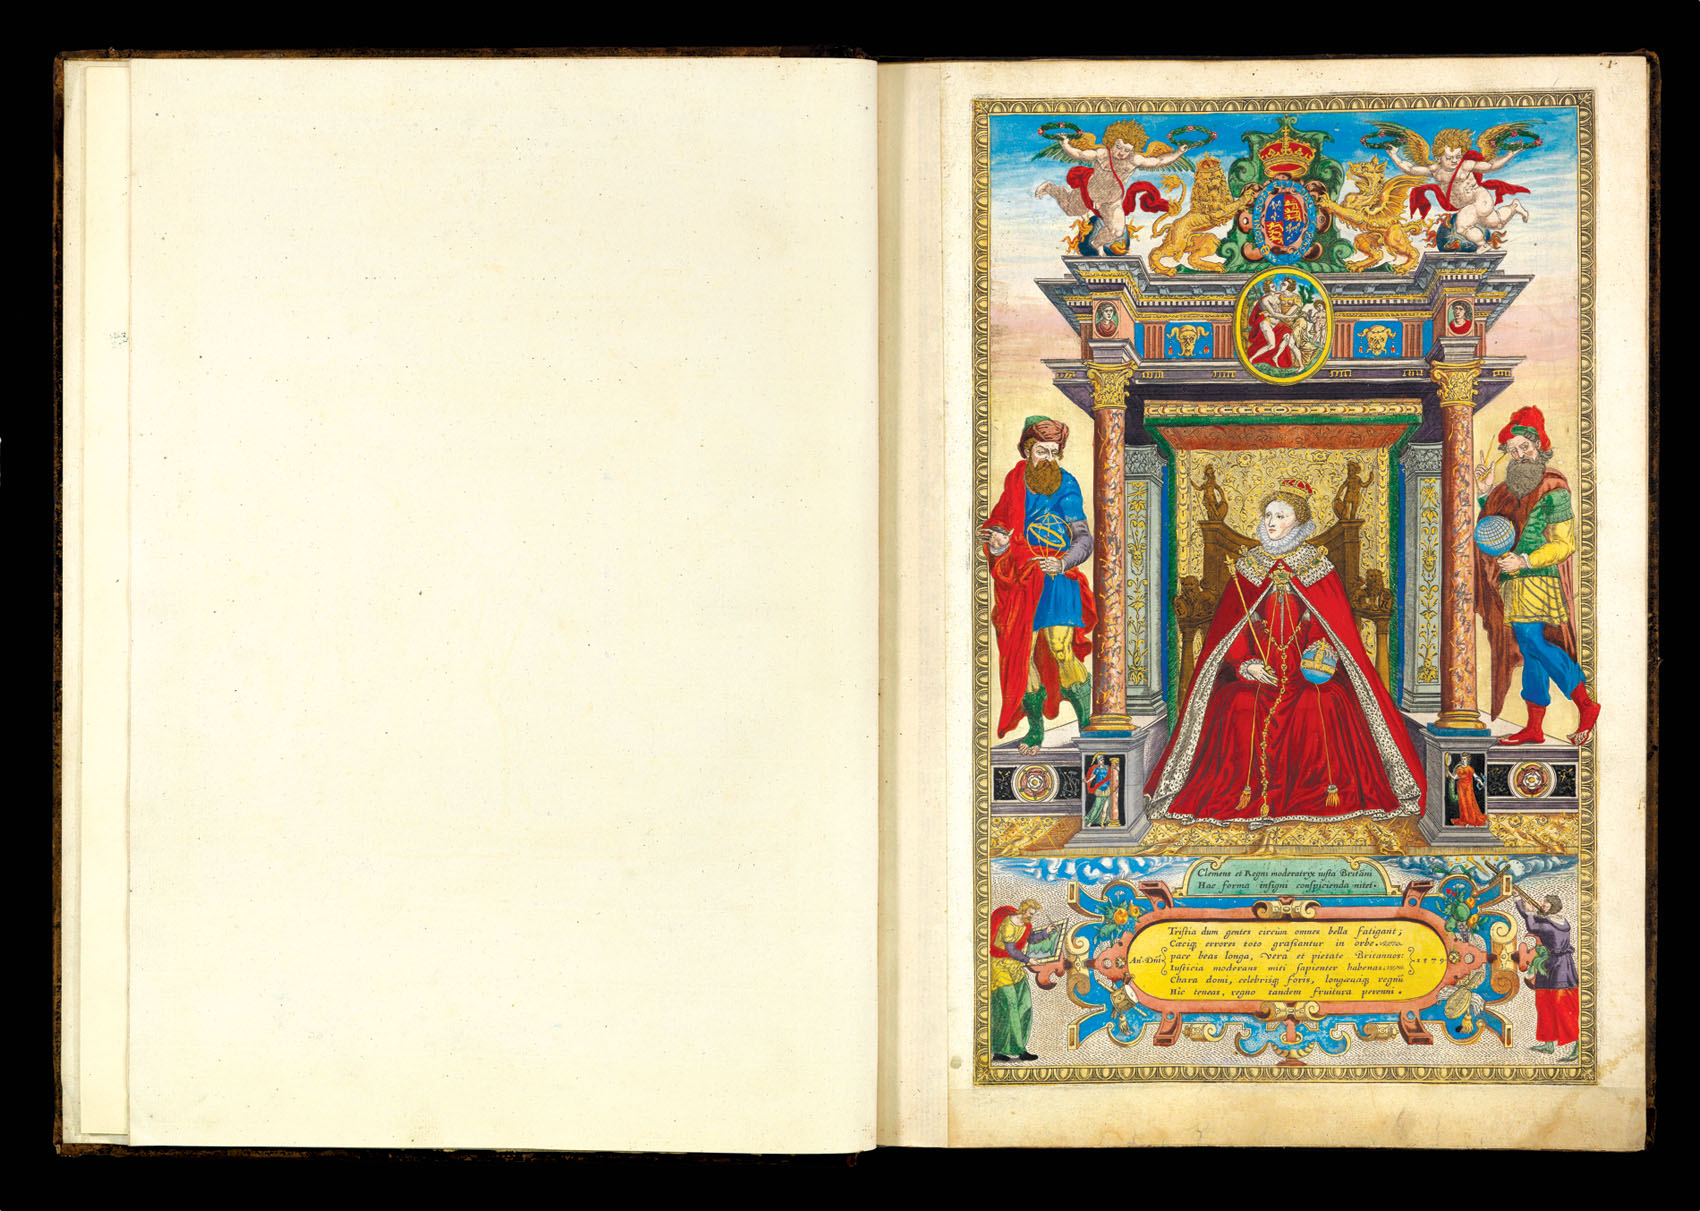 1
Clemens et Regni moderatrix iusta Britāni
Hac forma insigni conspicienda nitet.
Tristia dum gentes circùm omnes bella fatigant;
Cæciq; errores toto grassantur in orbe.
pace beas longa, vera et pietate Britannos:
Iusticia moderans miti sapienter habenas.
Chara domi, celebrisq; foris, longævaq; regnū
Hic teneas, regno tandem fruitura perenni.
An. Dnī.
1579